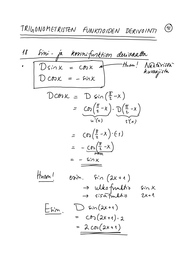 TRIGONOMETRISTEN FUNKTIOIDEN DERIVOINTI
18 Sini- ja kosinifunktion derivaatta
D sin x = cos x
D cos x = - sin x
Huom!
D cos x = D sin(π/2 - x)
= cos(π/2 - x) · D(π/2 - x)
= cos(π/2 - x) · (-1)
= - cos(π/2 - x)
= - sin x
Huom! esim. sin(2x+1)
→ ulkofunktio sin x
→ sisäfunktio 2x+1
Esim. D sin(2x+1)
= cos(2x+1) · 2
= 2 cos(2x+1)